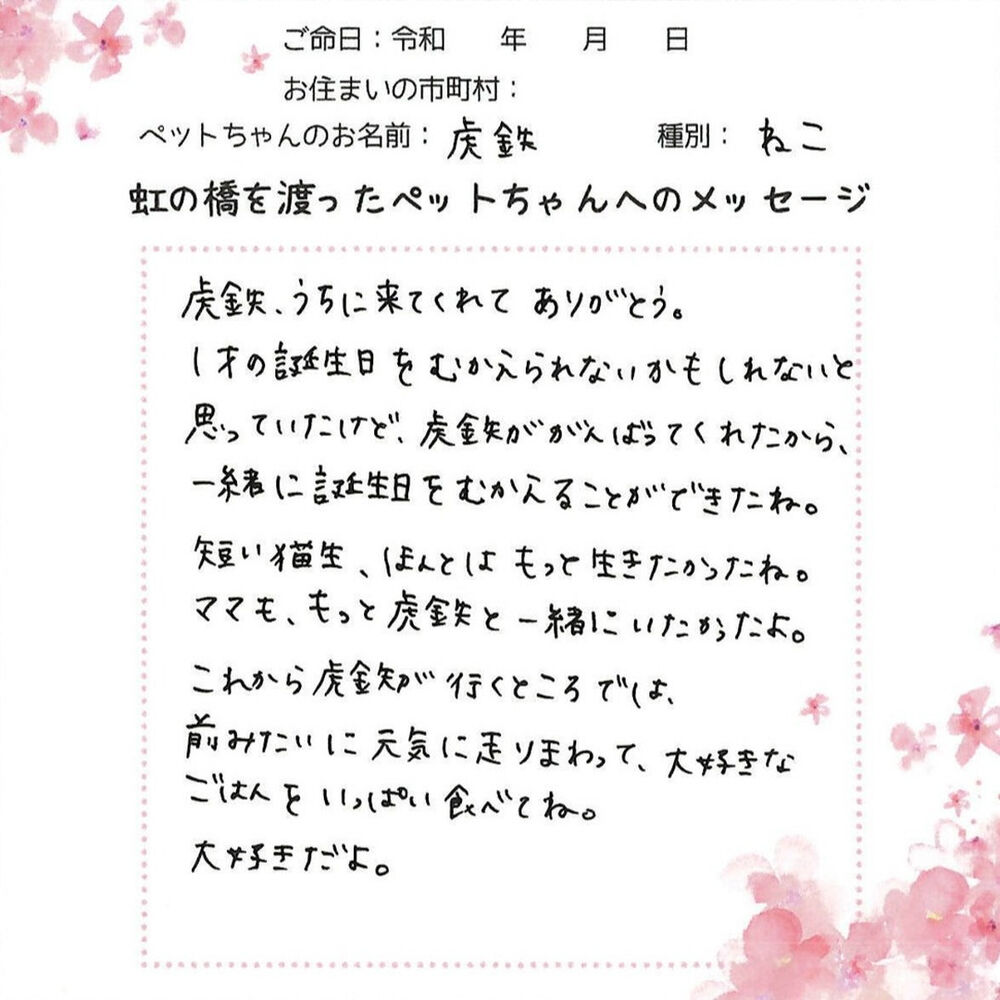 ご命日：令和　　年　　月　　日
お住まいの市町村：
ペットちゃんのお名前：虎鉄　　種別：ねこ
虹の橋を渡ったペットちゃんへのメッセージ
虎鉄、うちに来てくれて ありがとう。
1才の誕生日をむかえられないかもしれないと
思っていたけど、虎鉄ががんばってくれたから、
一緒に誕生日をむかえることができたね。
短い猫生、ほんとは もっと生きたかったね。
ママも、もっと虎鉄と一緒にいたかったよ。
これから虎鉄が行くところでは、
前みたいに元気に走りまわって、大好きな
ごはんをいっぱい食べてね。
大好きだよ。